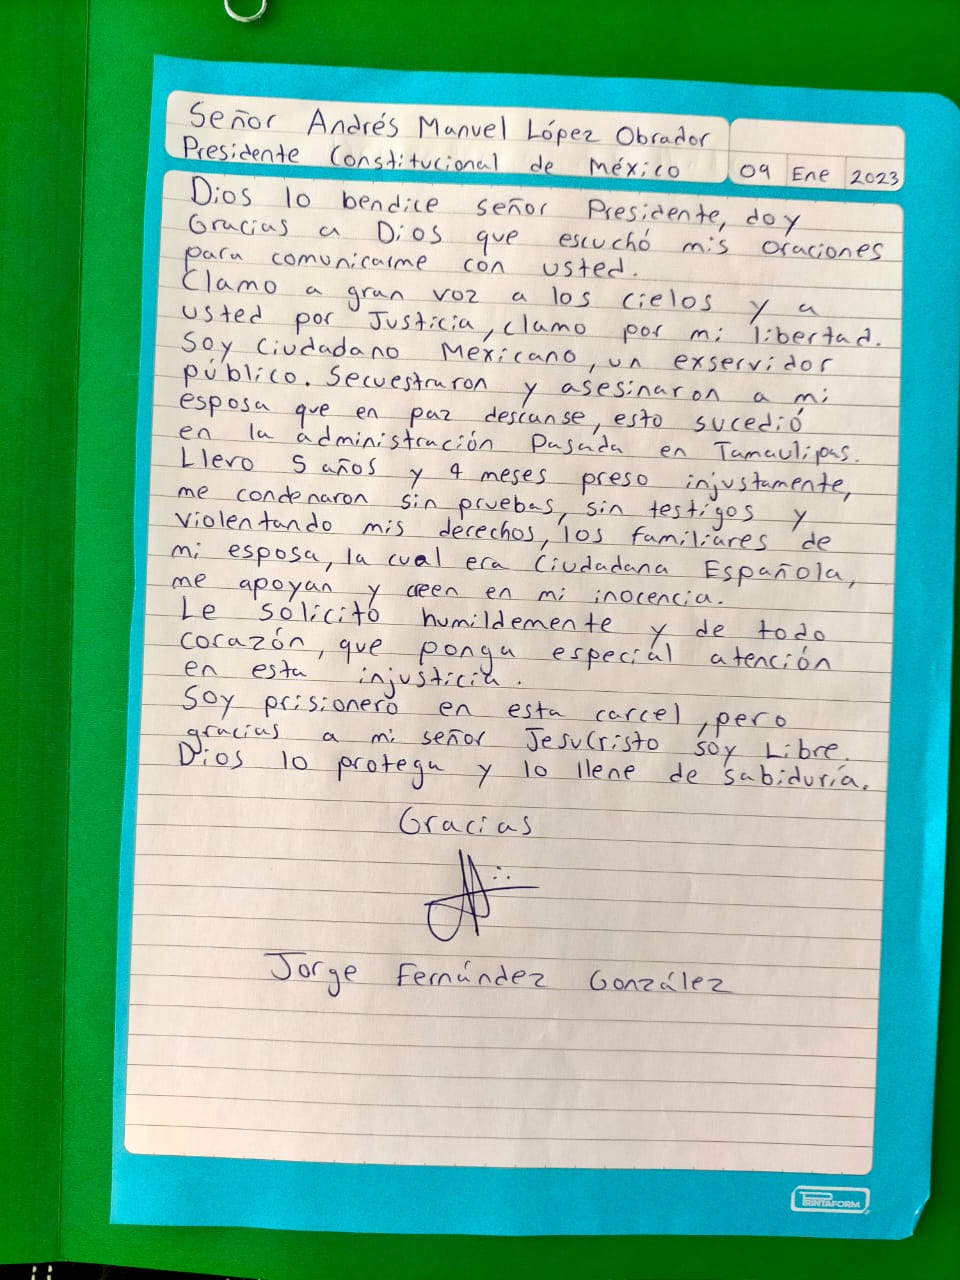 Señor Andrés Manuel López Obrador
Presidente Constitucional de México
09 Ene 2023
Dios lo bendice señor Presidente, doy
Gracias a Dios que escuchó mis oraciones
para comunicarme con usted.
Clamo a gran voz a los cielos y a
usted por Justicia, clamo por mi libertad.
Soy Ciudadano Mexicano, un exservidor
público. Secuestraron y asesinaron a mi
esposa que en paz descanse, esto sucedió
en la administración Pasada en Tamaulipas.
Llevo 5 años y 4 meses preso injustamente,
me condenaron sin pruebas, sin testigos y
violentando mis derechos, los familiares de
mi esposa, la cual era Ciudadana Española,
me apoyan y creen en mi inocencia.
Le solicitó humildemente y de todo
corazón, que ponga especial atención
en esta injusticia.
Soy prisionero en esta carcel, pero
gracias a mi señor Jesucristo soy Libre.
Dios lo protega y lo llene de sabiduría.
Gracias
Jorge Fernández González
PRINTAFORM